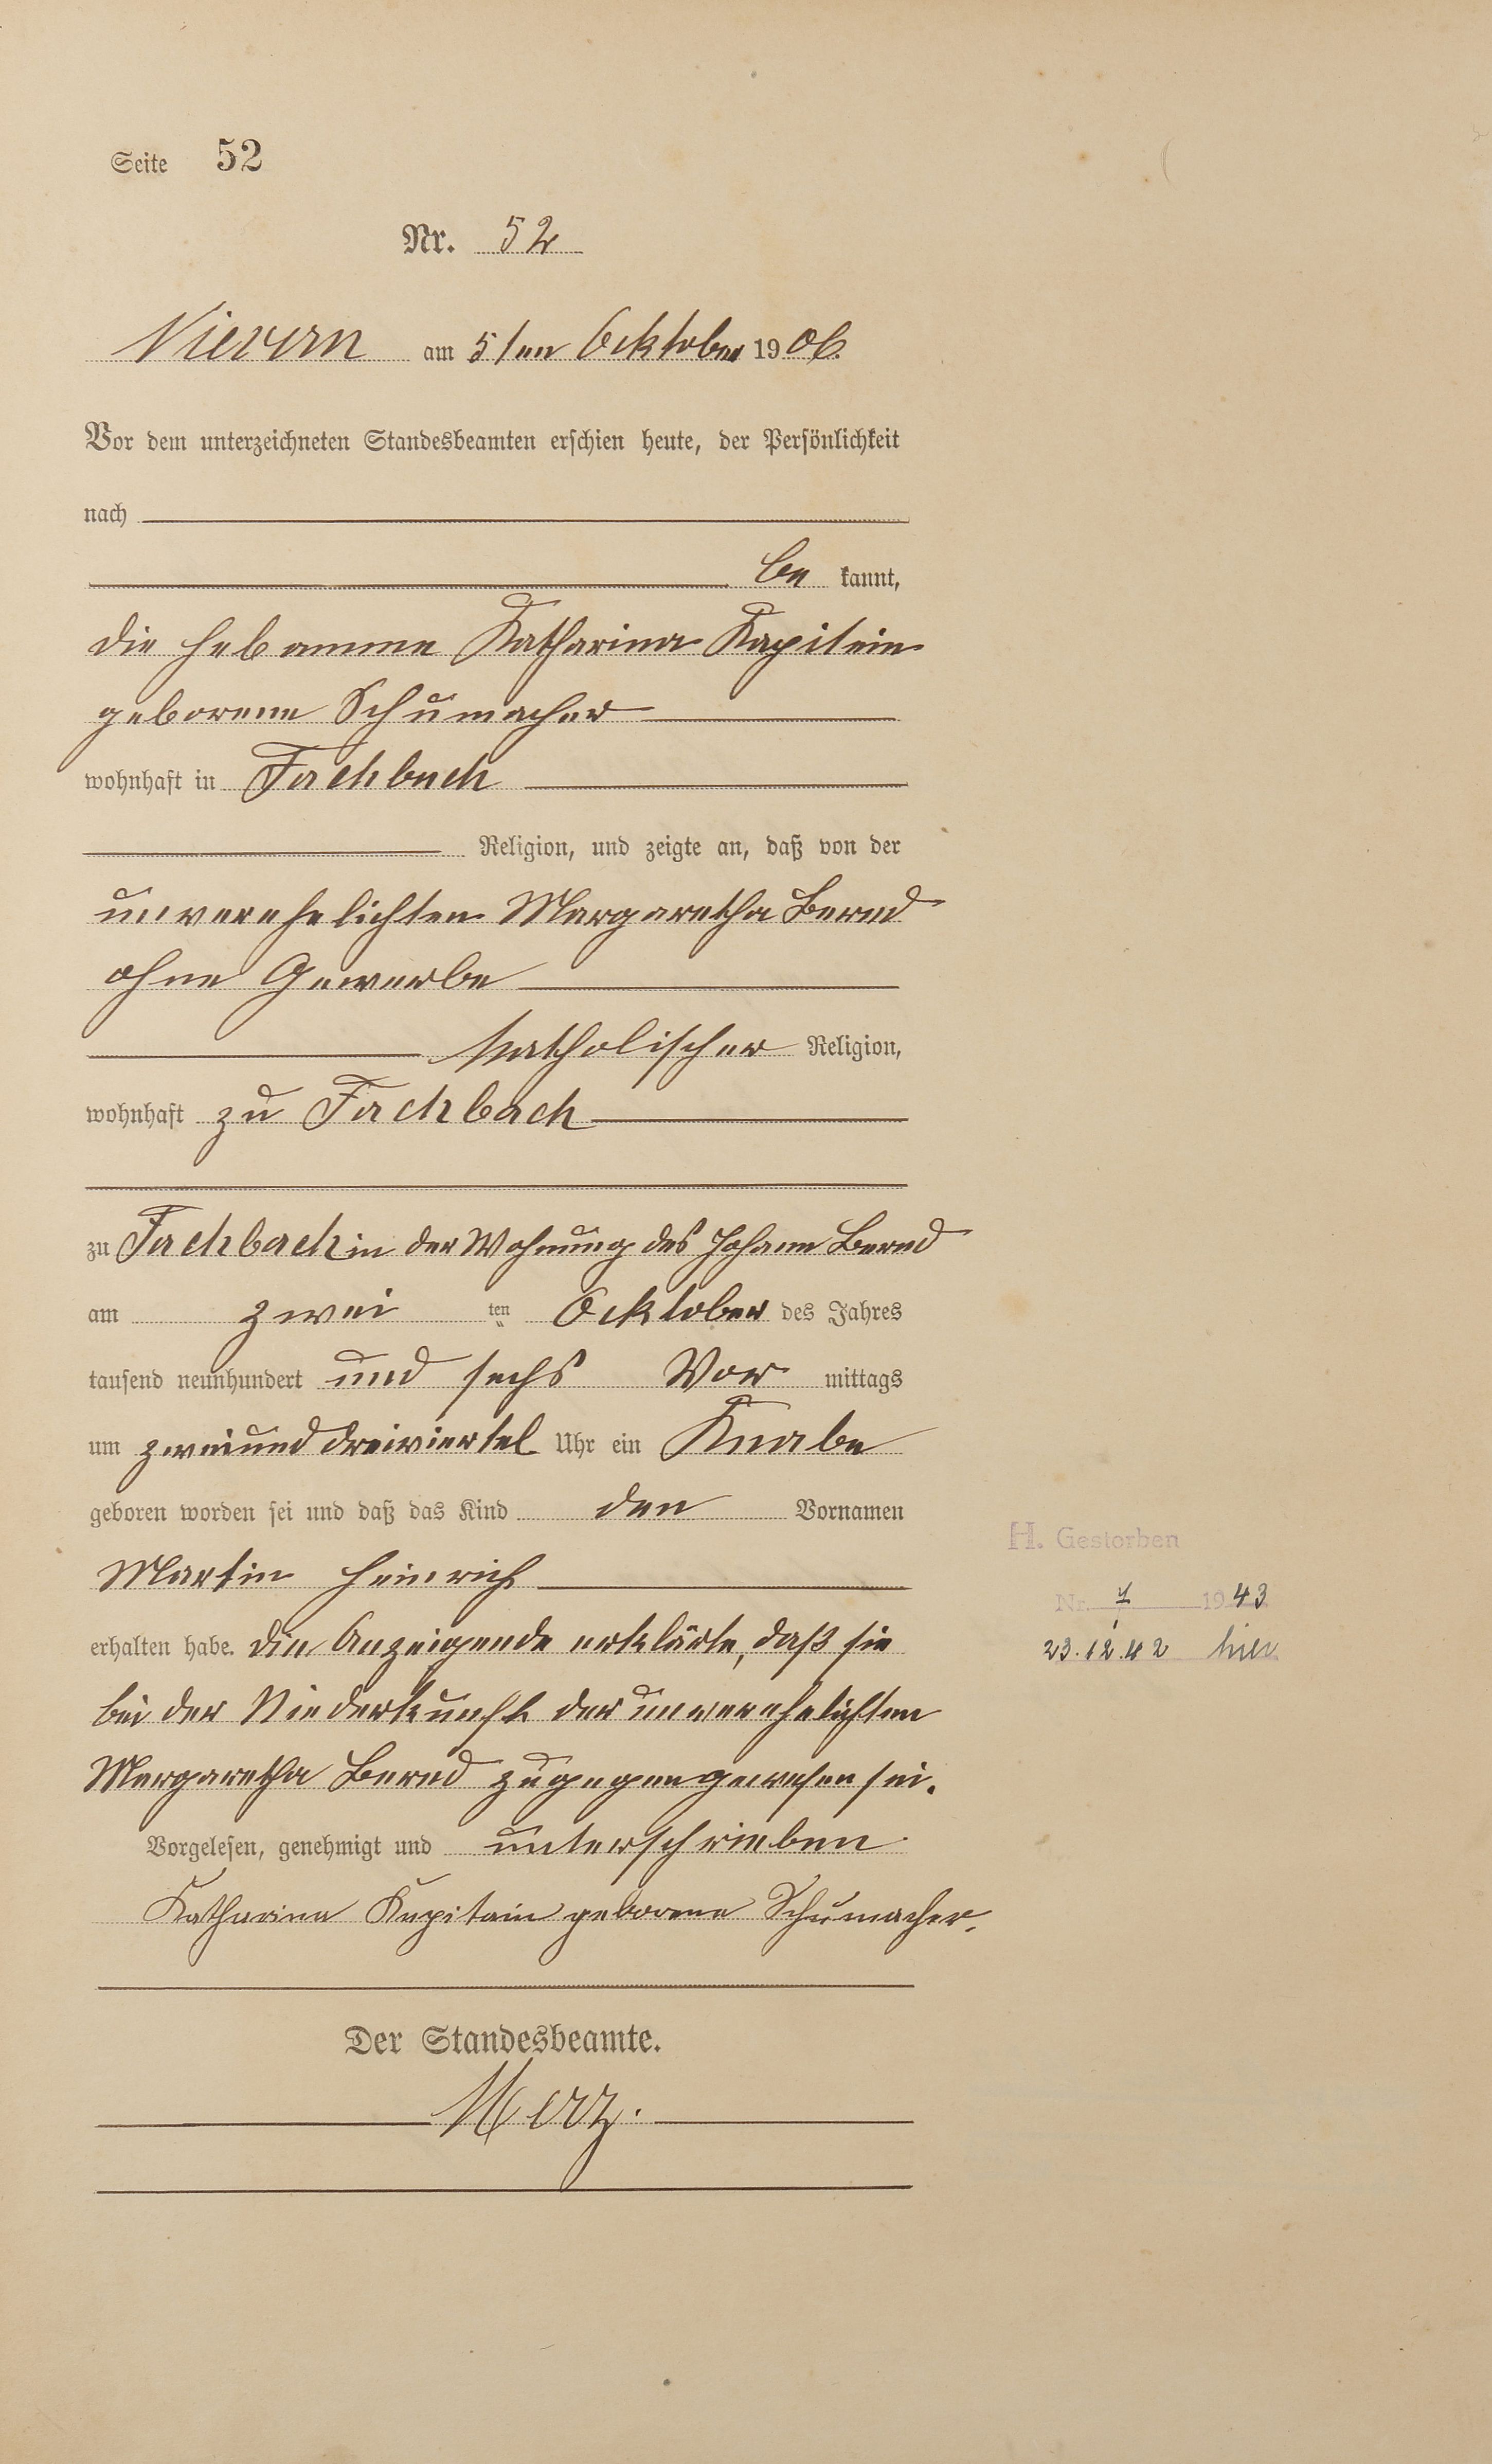 Seite 52
Nr. 52
Nievern am 5ten Ocktober 1906.
Vor dem unterzeichneten Standesbeamten erschien heute, der Persönlichkeit
nach
be kannt,
die Hebamme Katharina Kapitein
geborene Schumacher
wohnhaft in Fachbach
Religion, und zeigte an, daß von der
unverehelichten Margaretha Bernd
ohne Gewerbe
katholischer Religion,
wohnhaft zu Fachbach
zu Fachbach in der Wohnung des Johann Bernd
am zwei ten Ocktober des Jahres
tausend neunhundert und sechs Vor mittags
um zweiunddreiviertel Uhr ein Knabe
geboren worden sei und daß das Kind den Vornamen
Martin Heinrich
erhalten habe. Die Anzeigende erklärte, daß sie
bei der Niederkunft der unverehelichten
Margaretha Bernd zugegen gewesen sei.
Vorgelesen, genehmigt und unterschrieben
Katharina Kapitain geborene Schumacher.
Der Standesbeamte.
Merz.
H. Gestorben
Nr. 1 1943
23.12.42 hier